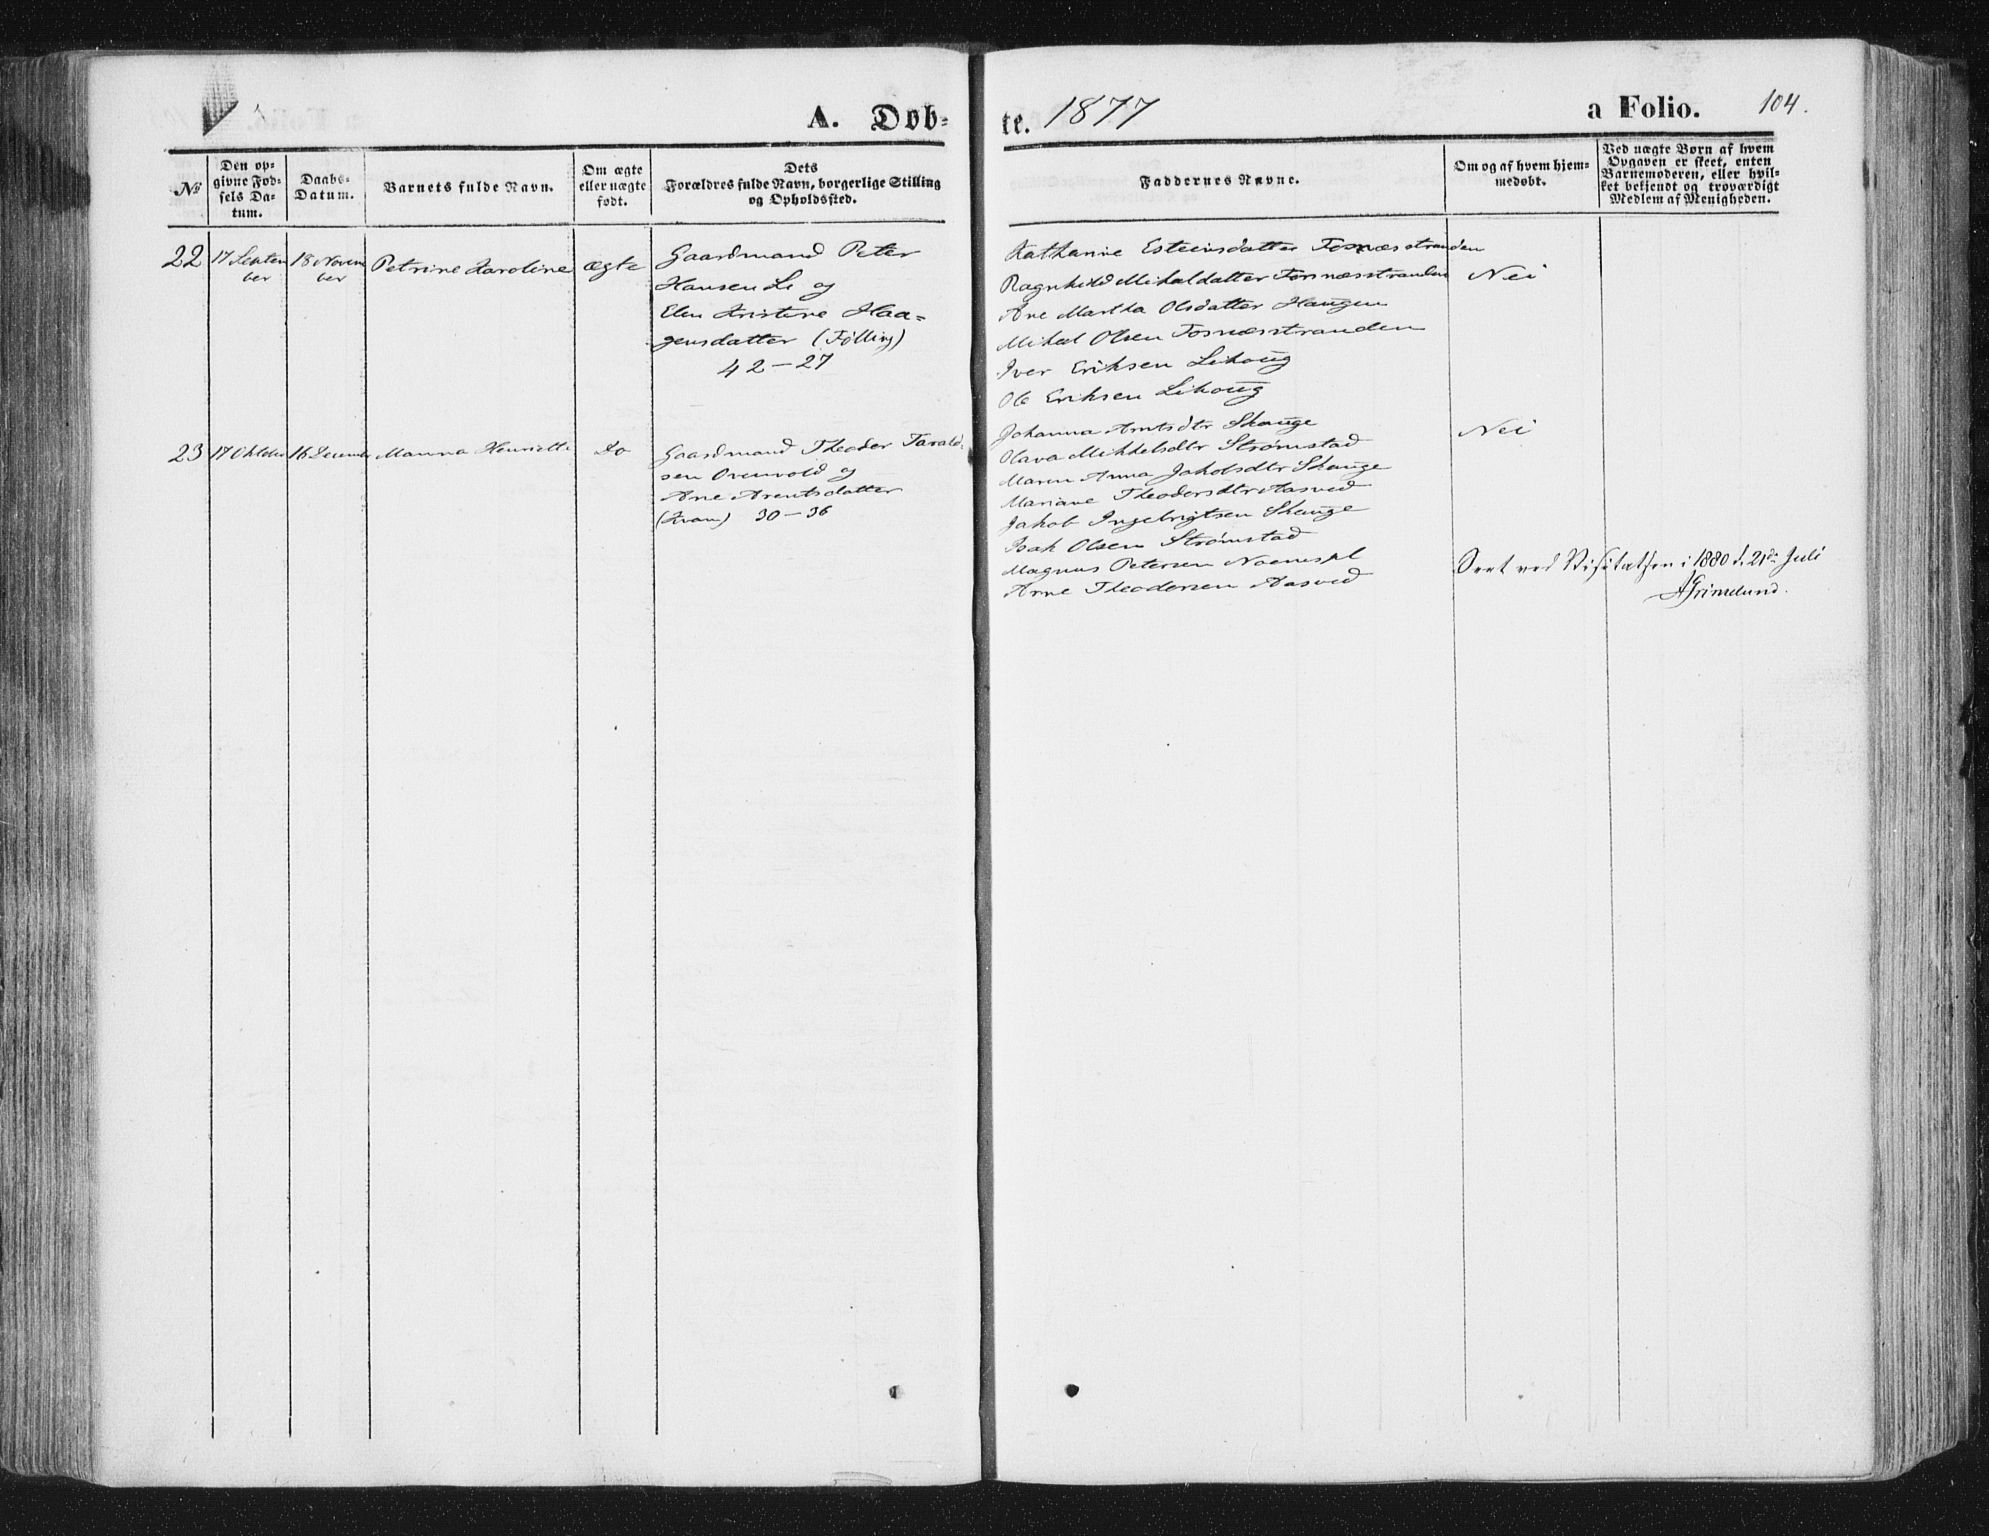 A. Døb-
te. 1877
a Folio. 104.
№
Den op-
givne Fød-
sels Da-
tum.
Daabs-
Datum.
Barnets fulde Navn.
Om ægte
eller uægte
født.
Dets
Forældres fulde Navn, borgerlige Stilling
og Opholdssted.
Faddernes Navne.
Om og af hvem hjem-
medøbt.
Ved uægte Børn af hvem
Opgaven er skeet, enten
Barnemoderen, eller hvil-
ket bekjendt og troværdigt
Medlem af Menigheden.
22
17 Septem
ber
18 Novem
ber
Petrine Karoline
ægte
Gaardmand Peter
Hansen Li og
Elen Kristine Haa-
gensdatter (Følling)
42-27
Kathanie Esteinsdatter Fosnæsstranden
Ragnhild Mikaldatter Fosnæsstranden
Ane Martha Olsdatter Haugen
Mikal Olsen Fosnæsstranden
Iver Eriksen Lihoug
Ole Eriksen Lihoug
Nei
23
17 Oktober
16 December
Manna Henriette
Do
Gaardmand Theoder Tarald-
sen Overvold og
Ane Arentsdatter
(Kvam) 30-36
Johanna Arntsdtr Skauge
Olava Mikkelsdtr Strømstad
Maren Anna Jakobsdtr Skauge
Mariane Theodersdtr Aasved
Jakob Ingebrigtsen Skauge
Isak Olsen Strømstad
Magnus Petersen
Arne Theodersen Aasved
Nei
Seet ved Visitatsen i 1880 d. 21de Juli
AGrimelund.